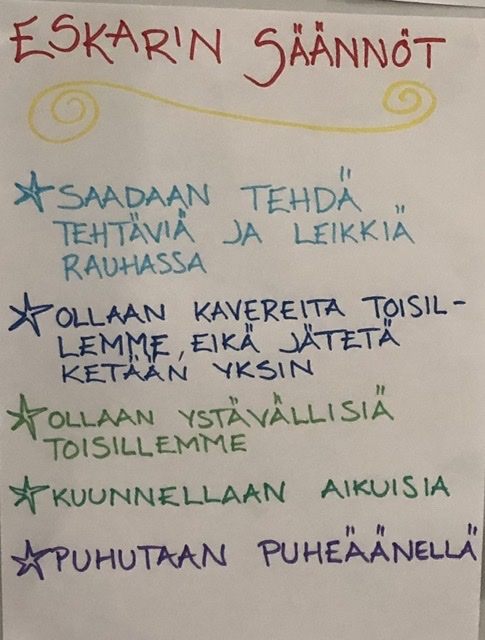 ESKARIN SÄÄNNÖT
SAADAAN TEHDÄ
TEHTÄVIÄ JA LEIKKIÄ
RAUHASSA
OLLAAN KAVEREITA TOISIL-
LEMME, EIKÄ JÄTETÄ
KETÄÄN YKSIN
OLLAAN YSTÄVÄLLISIÄ
TOISILLEMME
KUUNNELLAAN AIKUISIA
PUHUTAAN PUHEÄÄNELLÄ